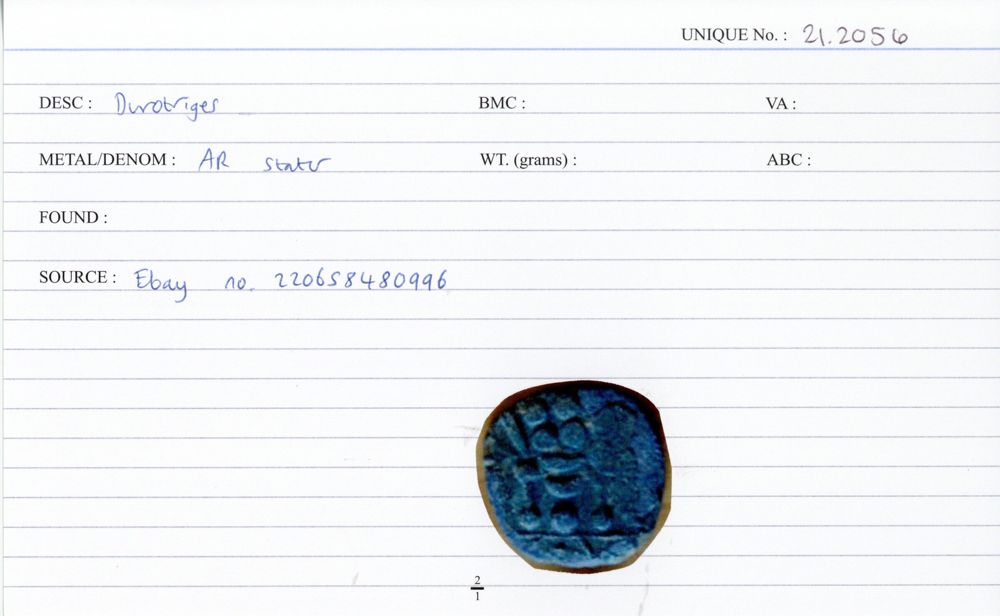 UNIQUE No. : 21.2056
DESC : Durotriges BMC : VA :
METAL/DENOM : AR stater WT. (grams) : ABC :
FOUND :
SOURCE : Ebay no. 220658480996
2
1